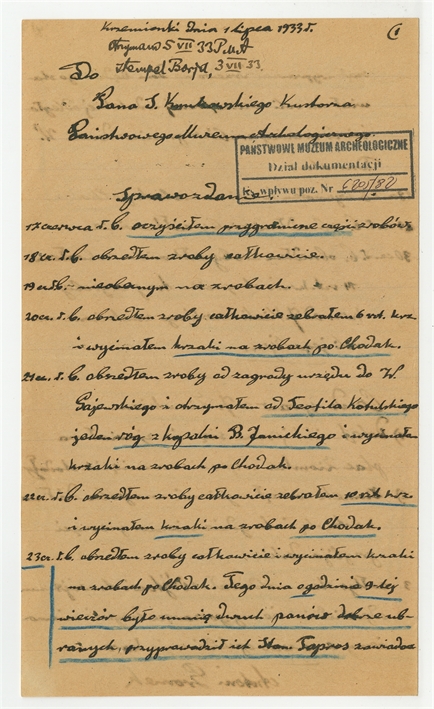 Krzemionki dnia 1 lipca 1933 r.
(1
Otrzymano 5 VII 33 P.M.A
stempel Borja, 3 VII 33.
Do
Pana S. Krukowskiego Kustosza
Państwowego Muzeum Archeologicznego.
PAŃSTWOWE MUZEUM ARCHEOLOGICZNE
Dział dokumentacji
wpływu poz. Nr 6205/82
Sprawozdanie
17 czerwca r.b. oczyściłem przygraniczne części zrobów
18 cz. r.b. obszedłem zroby całkowicie.
19 cz. r.b. - nieobecnym na zrobach.
20 cz. r.b. obszedłem zroby całkowicie zebrałem 6 szt. krz.
i wycinałem krzaki na zrobach po Chodak.
21 cz. r.b. obszedłem zroby od zagrody urzędu do W.
Gajewskiego i otrzymałem od Teofila Kotulskiego
jeden róg z kopalni B. Janickiego i wycinałem
krzaki na zrobach po Chodak.
22 cz. r.b. obszedłem zroby całkowicie zebrałem 10 szt. krz
i wycinałem krzaki na zrobach po Chodak.
23 cz. r.b. obszedłem zroby całkowicie i wycinałem krzaki
na zrobach po Chodak. Tego dnia o godzinie 9-tej
wieczór było u mnie dwuch panów dobrze ub-
ranych, przyprowadził ich Stan. Tapros zawiadca